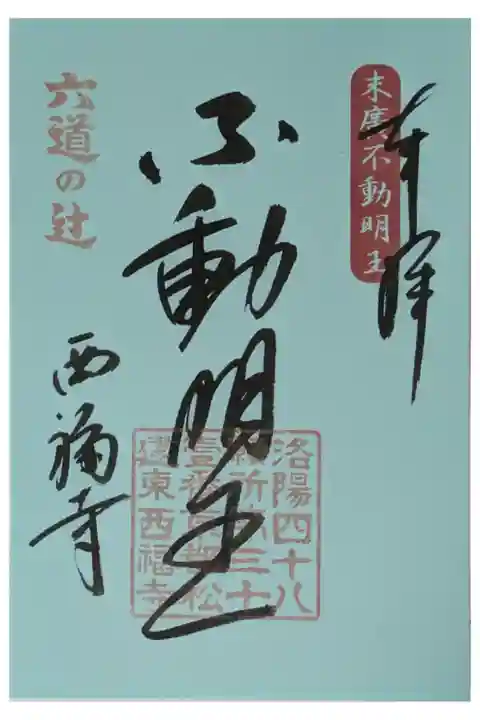 奉拝
末廣不動明王
不動明王
洛陽四十八
願所第三十
壹番京都松
東西福寺
六道の辻
西福寺